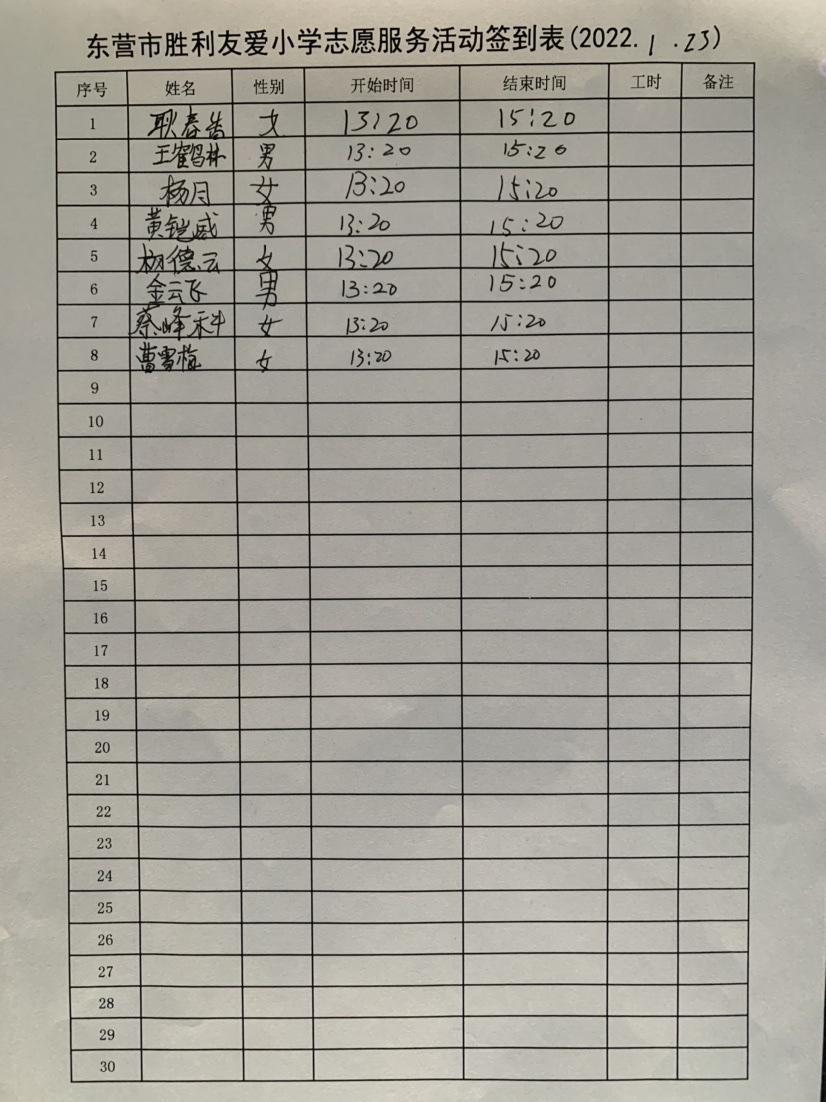 东营市胜利友爱小学志愿服务活动签到表(2022.1.23)
序号 姓名 性别 开始时间 结束时间 工时 备注
1 耿春 女 13:20 15:20
2 王鹤林 男 13:20 15:20
3 杨月 女 13:20 15:20
4 黄铠威 男 13:20 15:20
5 杨德云 女 13:20 15:20
6 金云飞 男 13:20 15:20
7 蔡峰科 女 13:20 15:20
8 曹雪梅 女 13:20 15:20
9
10
11
12
13
14
15
16
17
18
19
20
21
22
23
24
25
26
27
28
29
30